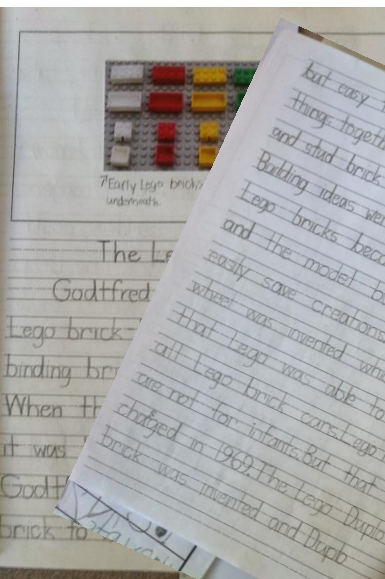 7 Early Lego bricks
underneath.
The Le
Godtfred
Lego brick-
binding br
When th
it was
Godtf
brick to
but easy
things togeth
and stud brick
Building ideas we
Lego bricks beca
and the model b
easily save creations
wheel was invented whi
that Lego was able to
all Lego brick cars. Lego
are not for infants. But that
changed in 1969. The Lego Duplo
brick was invented and Duplo